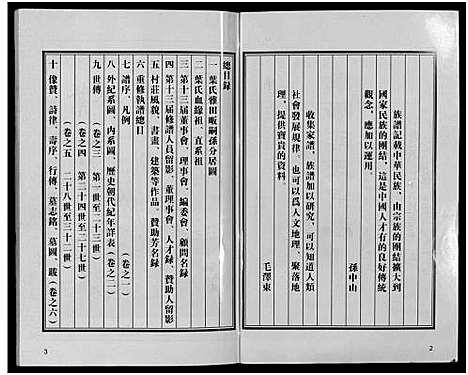 族譜記載中華民族、由宗族的團結擴大到
國家民族的團結，這是中國人才有的良好傳統
觀念，應加以運用。
孫中山
收集家譜、族譜加以研究，可以知道人類
社會發展規律、也可以爲人文地理、聚落地
理，提供寶貴的資料。
毛澤東
2
總目錄
一 葉氏雅田畈嗣孫分居圖
二 葉氏血緣祖、直系祖
三 第十三屆董事會、理事會、編委會、顧問名録
四 第十三屆修譜人員留影、董理事會、人才録、贊助人留影
五 村莊風貌、書畫、建築等作品、贊助芳名録
六 重修執譜總目
七 譜序、凡例（卷之一）
八 外紀系圖、内系圖、歷史朝代紀年詳表（卷之二）
九 世傳（卷之三 第一世至二十三世）
（卷之四 第二十四世至二十七世）
（卷之五 二十八世至三十二世）
十 像贊、詩律、壽序、行傳、墓志銘、墓圖、跋（卷之六）
3